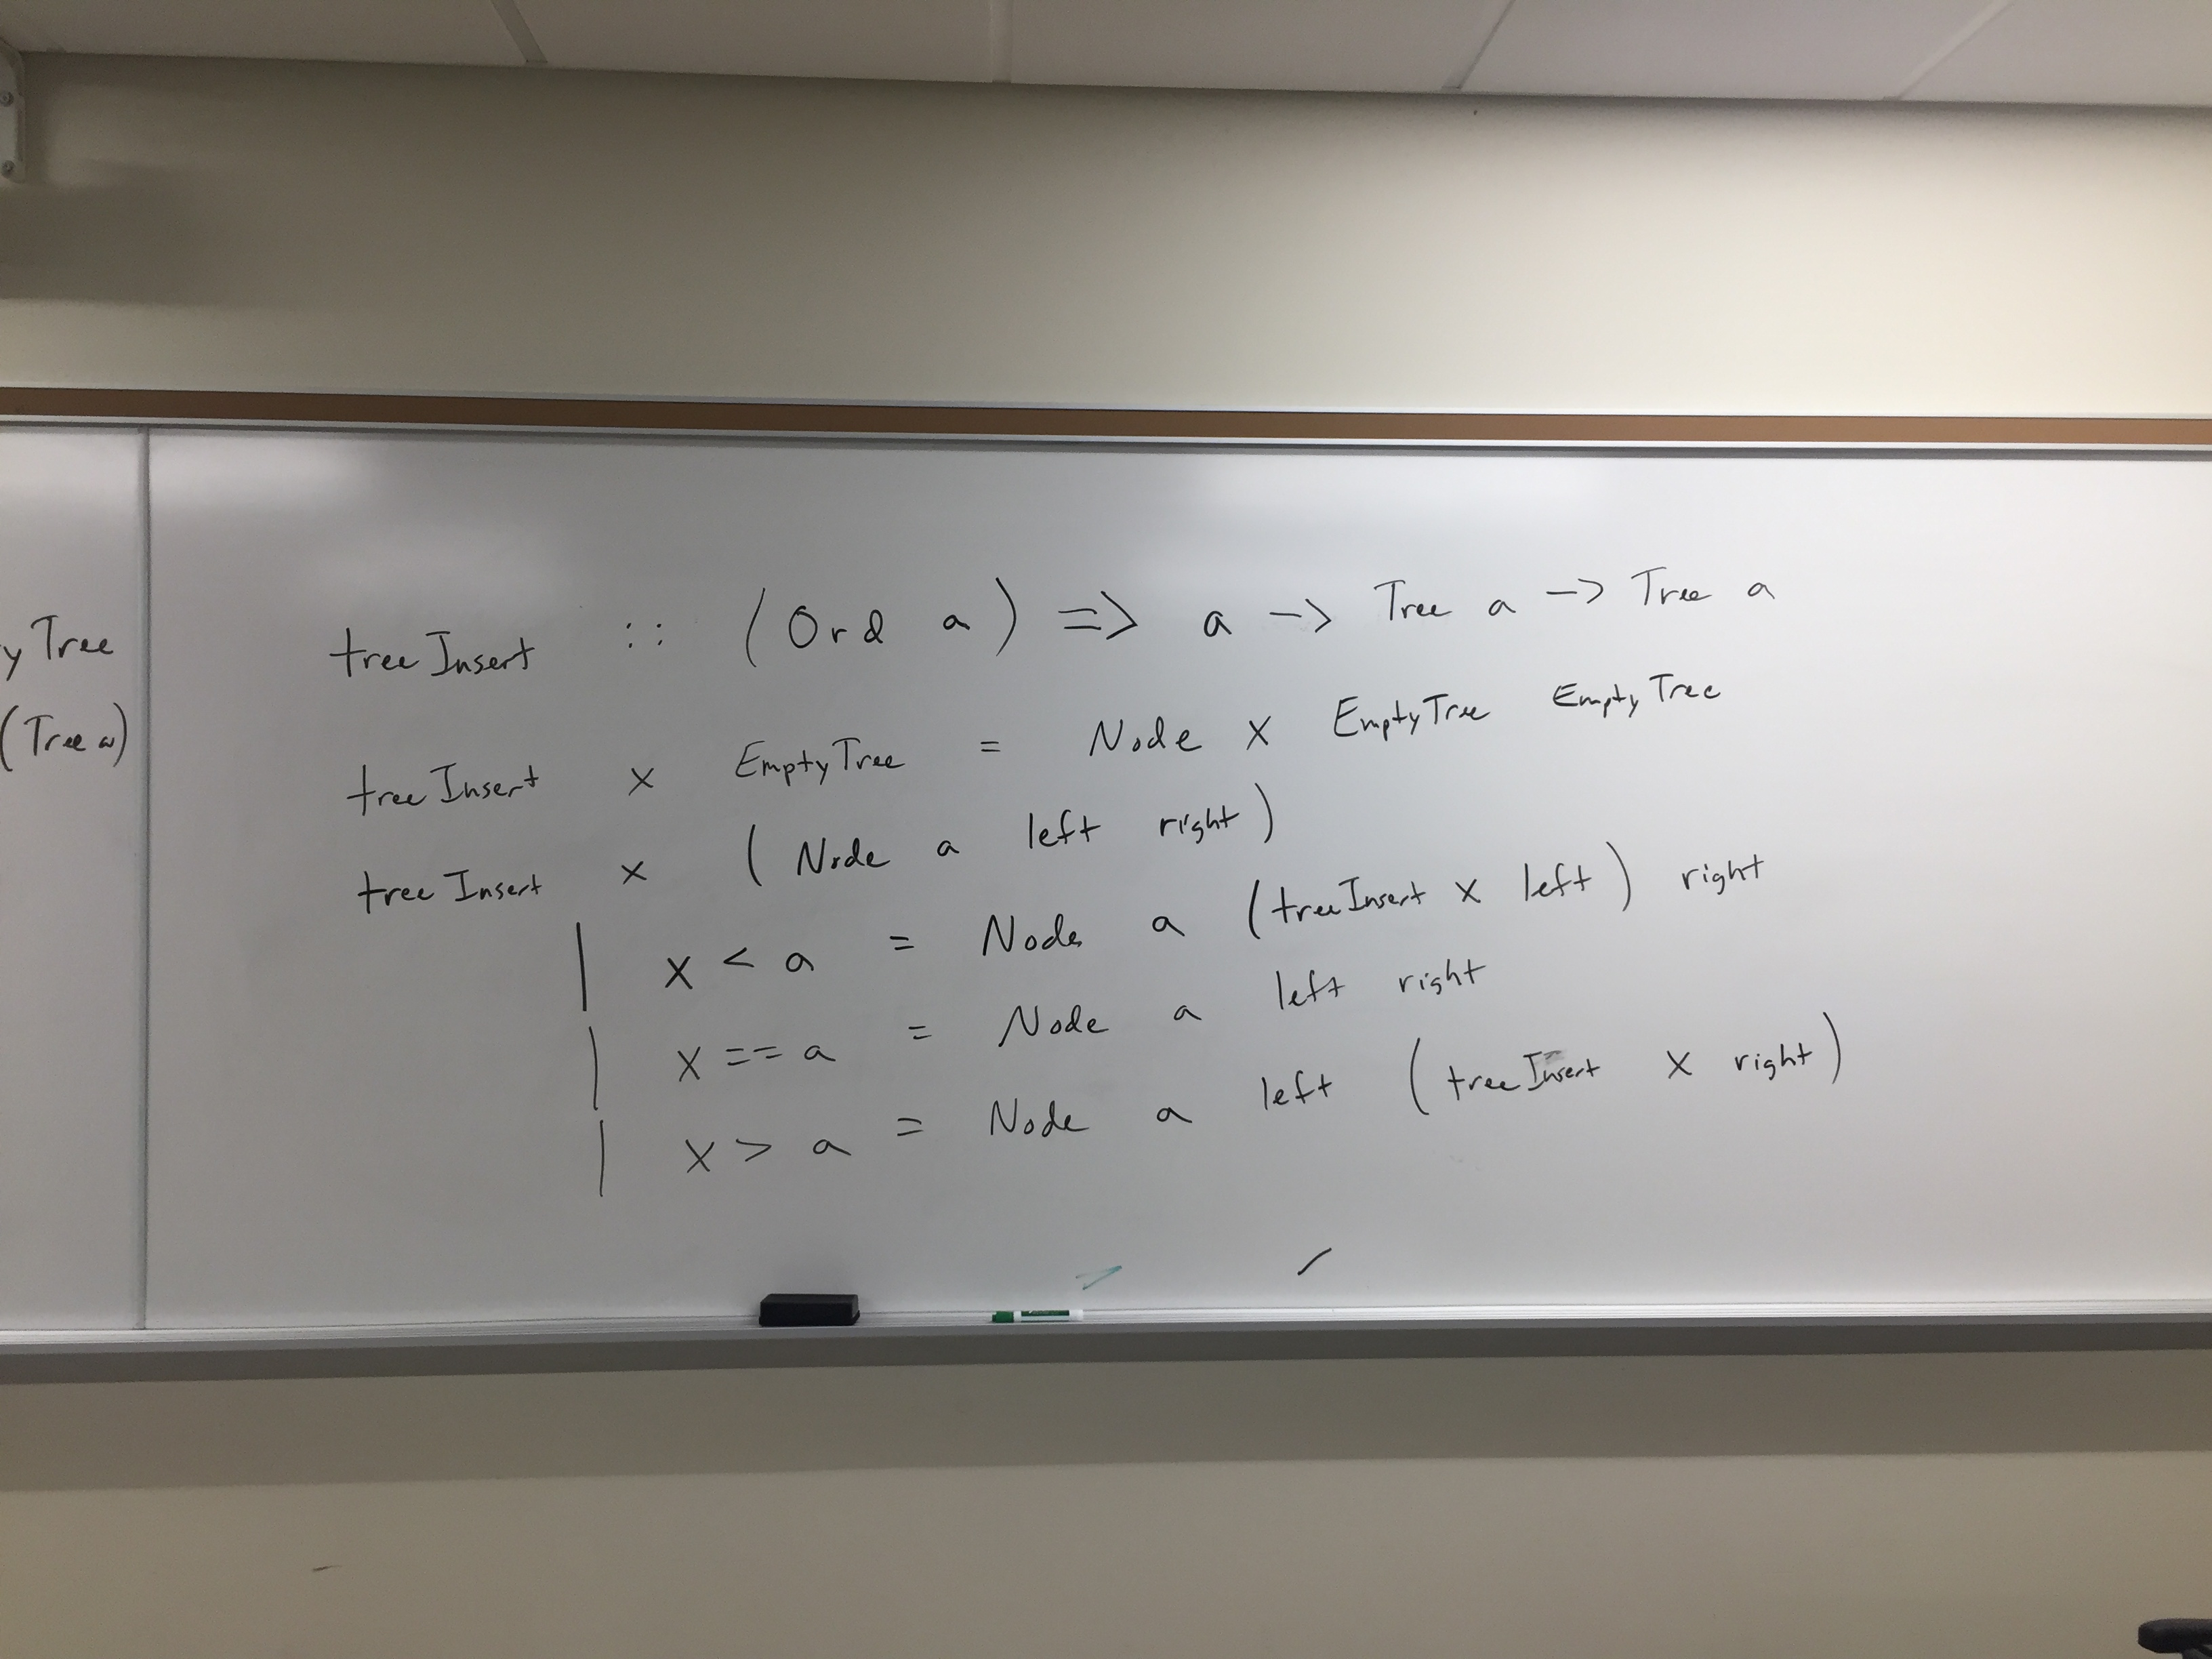 y Tree
(Tree a)
treeInsert :: (Ord a) => a -> Tree a -> Tree a
treeInsert x EmptyTree = Node x EmptyTree EmptyTree
treeInsert x (Node a left right)
| x < a = Node a (treeInsert x left) right
| x == a = Node a left right
| x > a = Node a left (treeInsert x right)